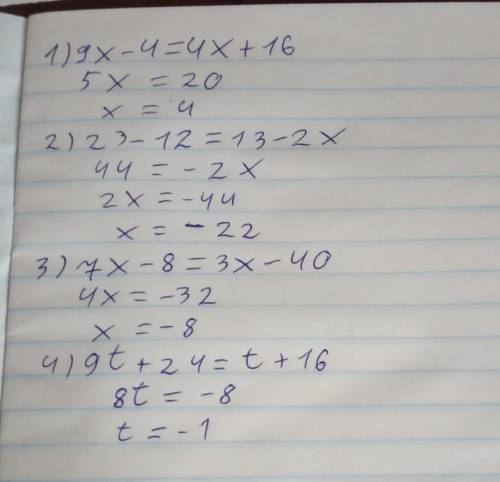 1) 9x - 4 = 4x + 16
5x = 20
x = 4
2) 23 - 12 = 13 - 2x
44 = - 2x
2x = -44
x = - 22
3) 7x - 8 = 3x - 40
4x = -32
x = -8
4) 9t + 24 = t + 16
8t = -8
t = -1